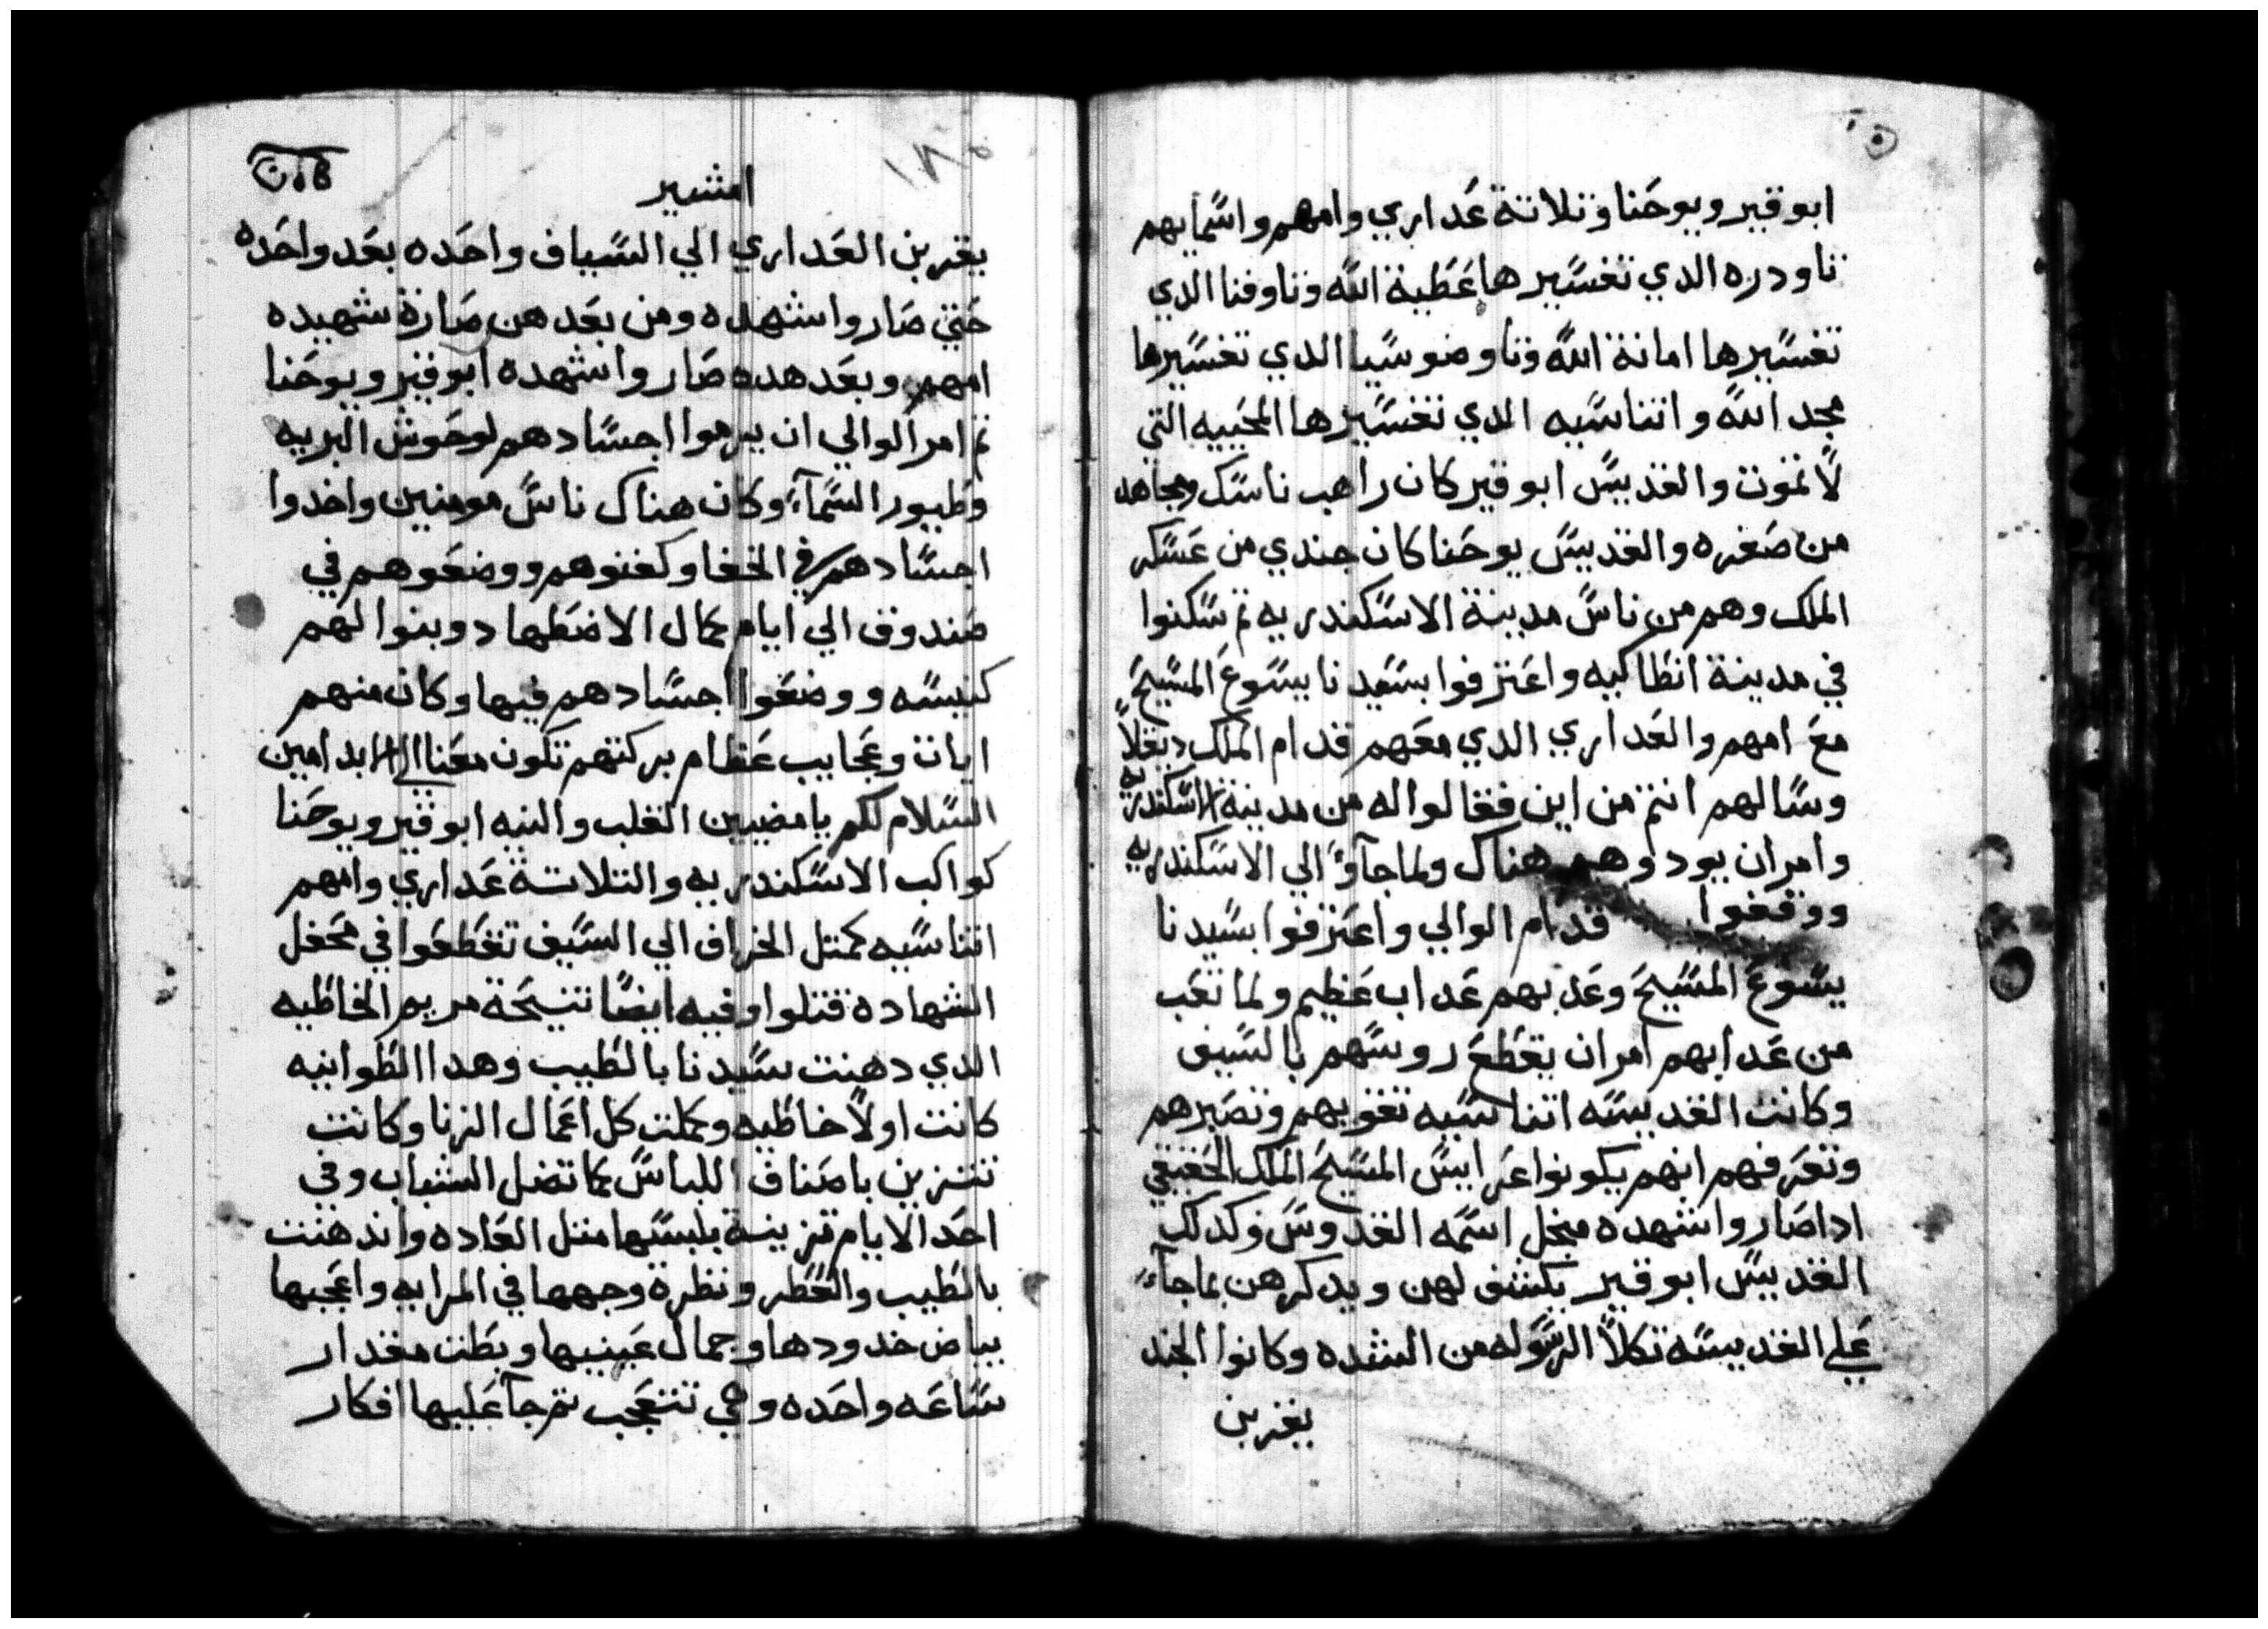 ابو قير ويوحنا وتلاتة عداري وامهم واسمايهم
تاودره الدي تفسيرها عطية الله وتاوفنا الدي
تفسيرها امانة الله وتاوضوسيا الدي تفسيرها
مجد الله واتناسيه الدي تفسيرها المحييه التي
لا تموت والقديس ابو قير كان راهب ناسك ومجاهد
من صغره والقديس يوحنا كان جندي من عسكر
الملك وهم من ناس مدينة الاسكندريه تم سكنوا
في مدينة انطاكيه واعترفوا بسيدنا يسوع المسيح
مع امهم والعداري الدي معهم قدام الملك دقلا
وسالهم انتم من اين فقالوا له من مدينة الاسكندريه
وامر ان يودوهم هناك ولما جآوا الي الاسكندريه
ووقفوا قدام الوالي واعترفوا بسيدنا
يسوع المسيح وعدبهم عداب عظيم ولما تعب
من عدابهم امر ان يقطع روسهم بالسيف
وكانت القديسه اتناسيه تقويهم وتصبرهم
وتعرفهم انهم يكونوا عرايس المسيح الملك الحقيقي
ادا صاروا شهده من اجل اسمه القدوس وكدلك
القديس ابو قير يكشف لهن ويدكرهن بما جآء
علي القديسه تكلا الرسوله من الشده وكانوا الجند
يقربن
امشير
يقربن العداري الي السياف واحده بعد واحده
حتي صاروا شهده ومن بعدهن صارة شهيده
امهم وبعد هده صاروا شهده ابو قير ويوحنا
تم امر الوالي ان يرموا اجسادهم لوحوش البريه
وطيور السمآء وكان هناك ناس مومنين واخدوا
اجسادهم في الخفا وكفنوهم ووضعوهم في
صندوق الي ايام كمال الاضطهاد وبنوا لهم
كنيسه ووضعوا اجسادهم فيها وكان منهم
ايات وعجايب عظام بركتهم تكون معنا الي الابد امين
السلام لكم يا مضيين القلب والنيه ابو قير ويوحنا
كواكب الاسكندريه والتلاتة عداري وامهم
اتناسيه كمتل الخراف الي السيف تقطعوا في محفل
الشهاده قتلوا وفيه ايضا تنيحة مريم الخاطيه
الدي دهنت سيدنا بالطيب وهدا الطوبانيه
كانت اولا خاطيه وكملت كل اعمال الزنا وكانت
تتزين باصناف اللباس كما تضل الشباب وفي
احد الايام تزينة بلبسها متل العاده واندهنت
بالطيب والعطر ونظرة وجهها في المرايه واعجبها
بياض خدودها وجمال عينيها وبطت مقدار
ساعه واحده وهي تتعجب تم جآ عليها افكار